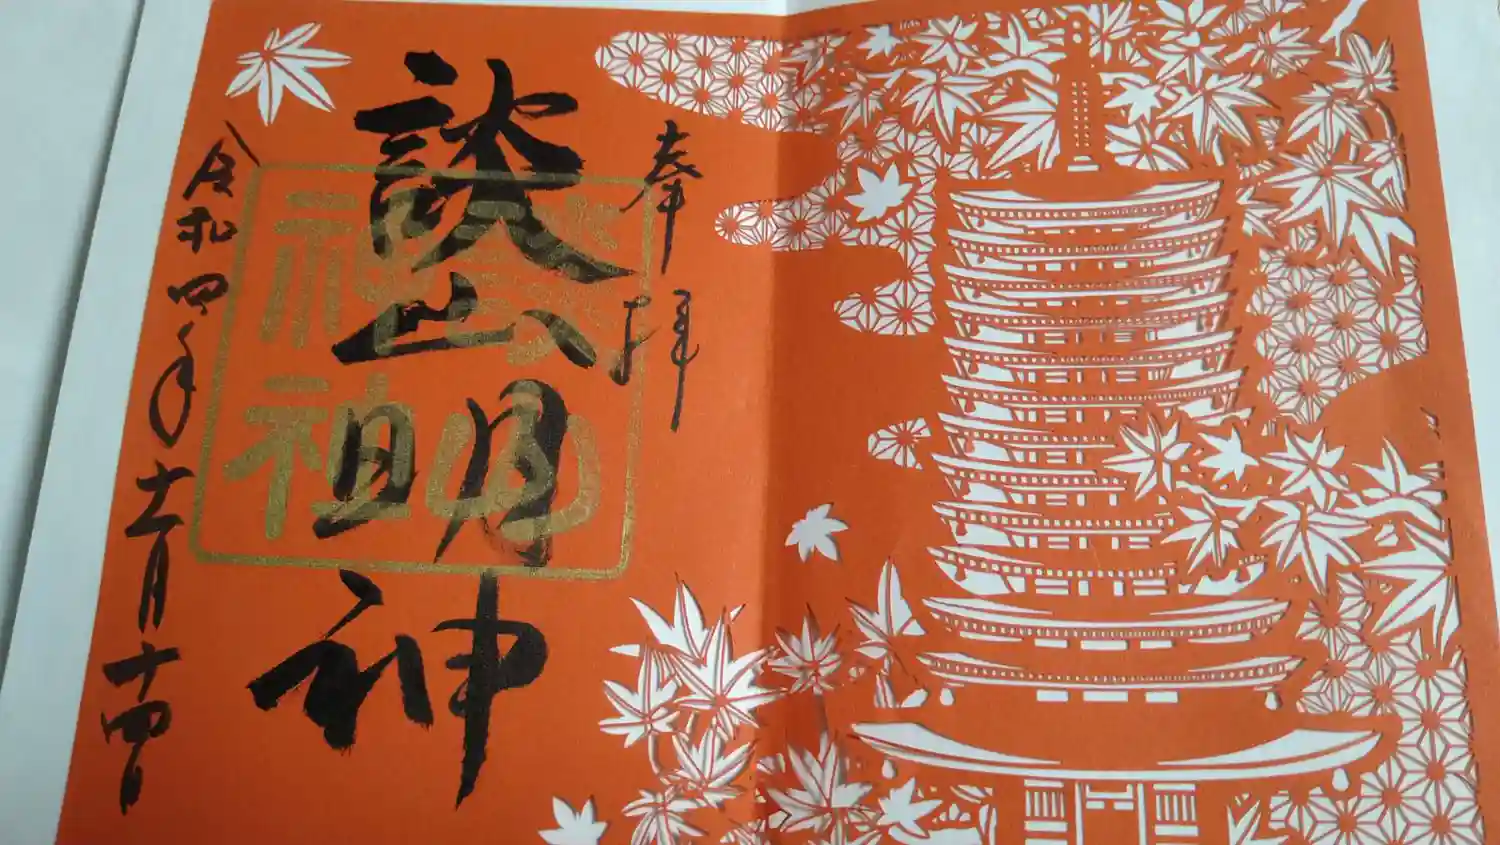 奉拝
談山明神
談山
神社
令和四年十一月十四日